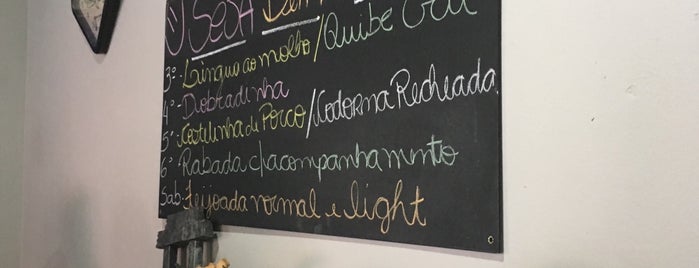 3º- Língua ao molho/Quibe
4º- Dobradinha
5º- Costelinha de Porco/Codorna Recheada.
6º Rabada c/acompanhamento
Sab. Feijoada normal e light